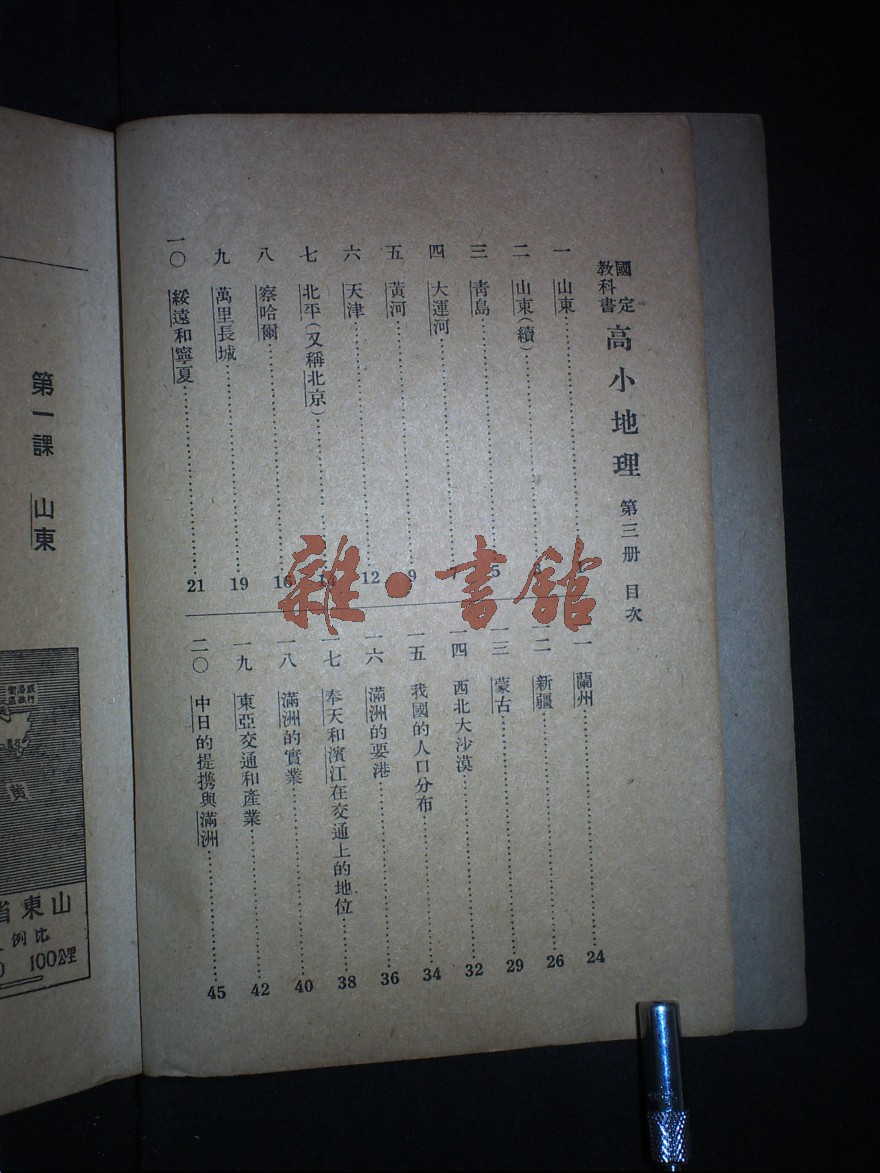 國定教科書 高小地理 第三册 目次
一 山東
二 山東(續) 3
三 青島 5
四 大運河 7
五 黃河 9
六 天津 12
七 北平(又稱北京) 14
八 察哈爾 16
九 萬里長城 19
一〇 綏遠和寧夏 21
一一 蘭州 24
一二 新疆 26
一三 蒙古 29
一四 西北大沙漠 32
一五 我國的人口分布 34
一六 滿洲的要港 36
一七 奉天和濱江在交通上的地位 38
一八 滿洲的實業 40
一九 東亞交通和產業 42
二〇 中日的提携與滿洲 45
雜·書館
第一課 山東
黃
山東省
比例
100公里